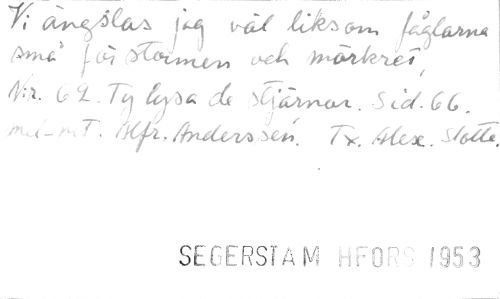 Vi ängslas jag väl liksom fåglarna
små för stormen och mörkret,
N:r. 62. Ty lysa de stjärnor. Sid. 66.
mel-mt. Alfr. Anderssén. Tx. Alex. Slotte.
SEGERSTAM HFORS 1953